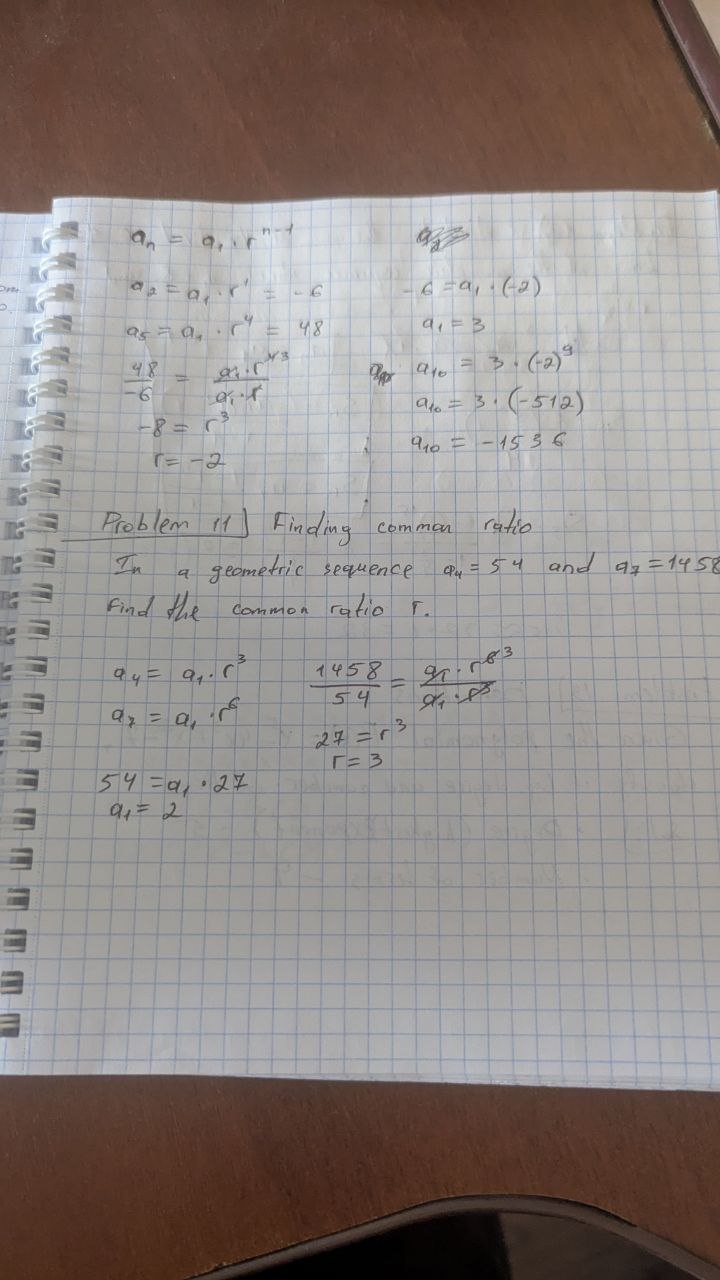 aₙ = a₁ · rⁿ⁻¹
a₂ = a₁ · r¹ = -6
a₅ = a₁ · r⁴ = 48
48/-6 = a₁ · r⁴ ³/a₁ · r
-8 = r³
r = -2
-6 = a₁ · (-2)
a₁ = 3
a₁₀ = 3 · (-2)⁹
a₁₀ = 3 · (-512)
a₁₀ = -1536
Problem 11] Finding common ratio
In a geometric sequence a₄ = 54 and a₇ = 1458
Find the common ratio r.
a₄ = a₁ · r³
a₇ = a₁ · r⁶
54 = a₁ · 27
a₁ = 2
1458/54 = a₁ · r⁶ ³/a₁ · r³
27 = r³
r = 3